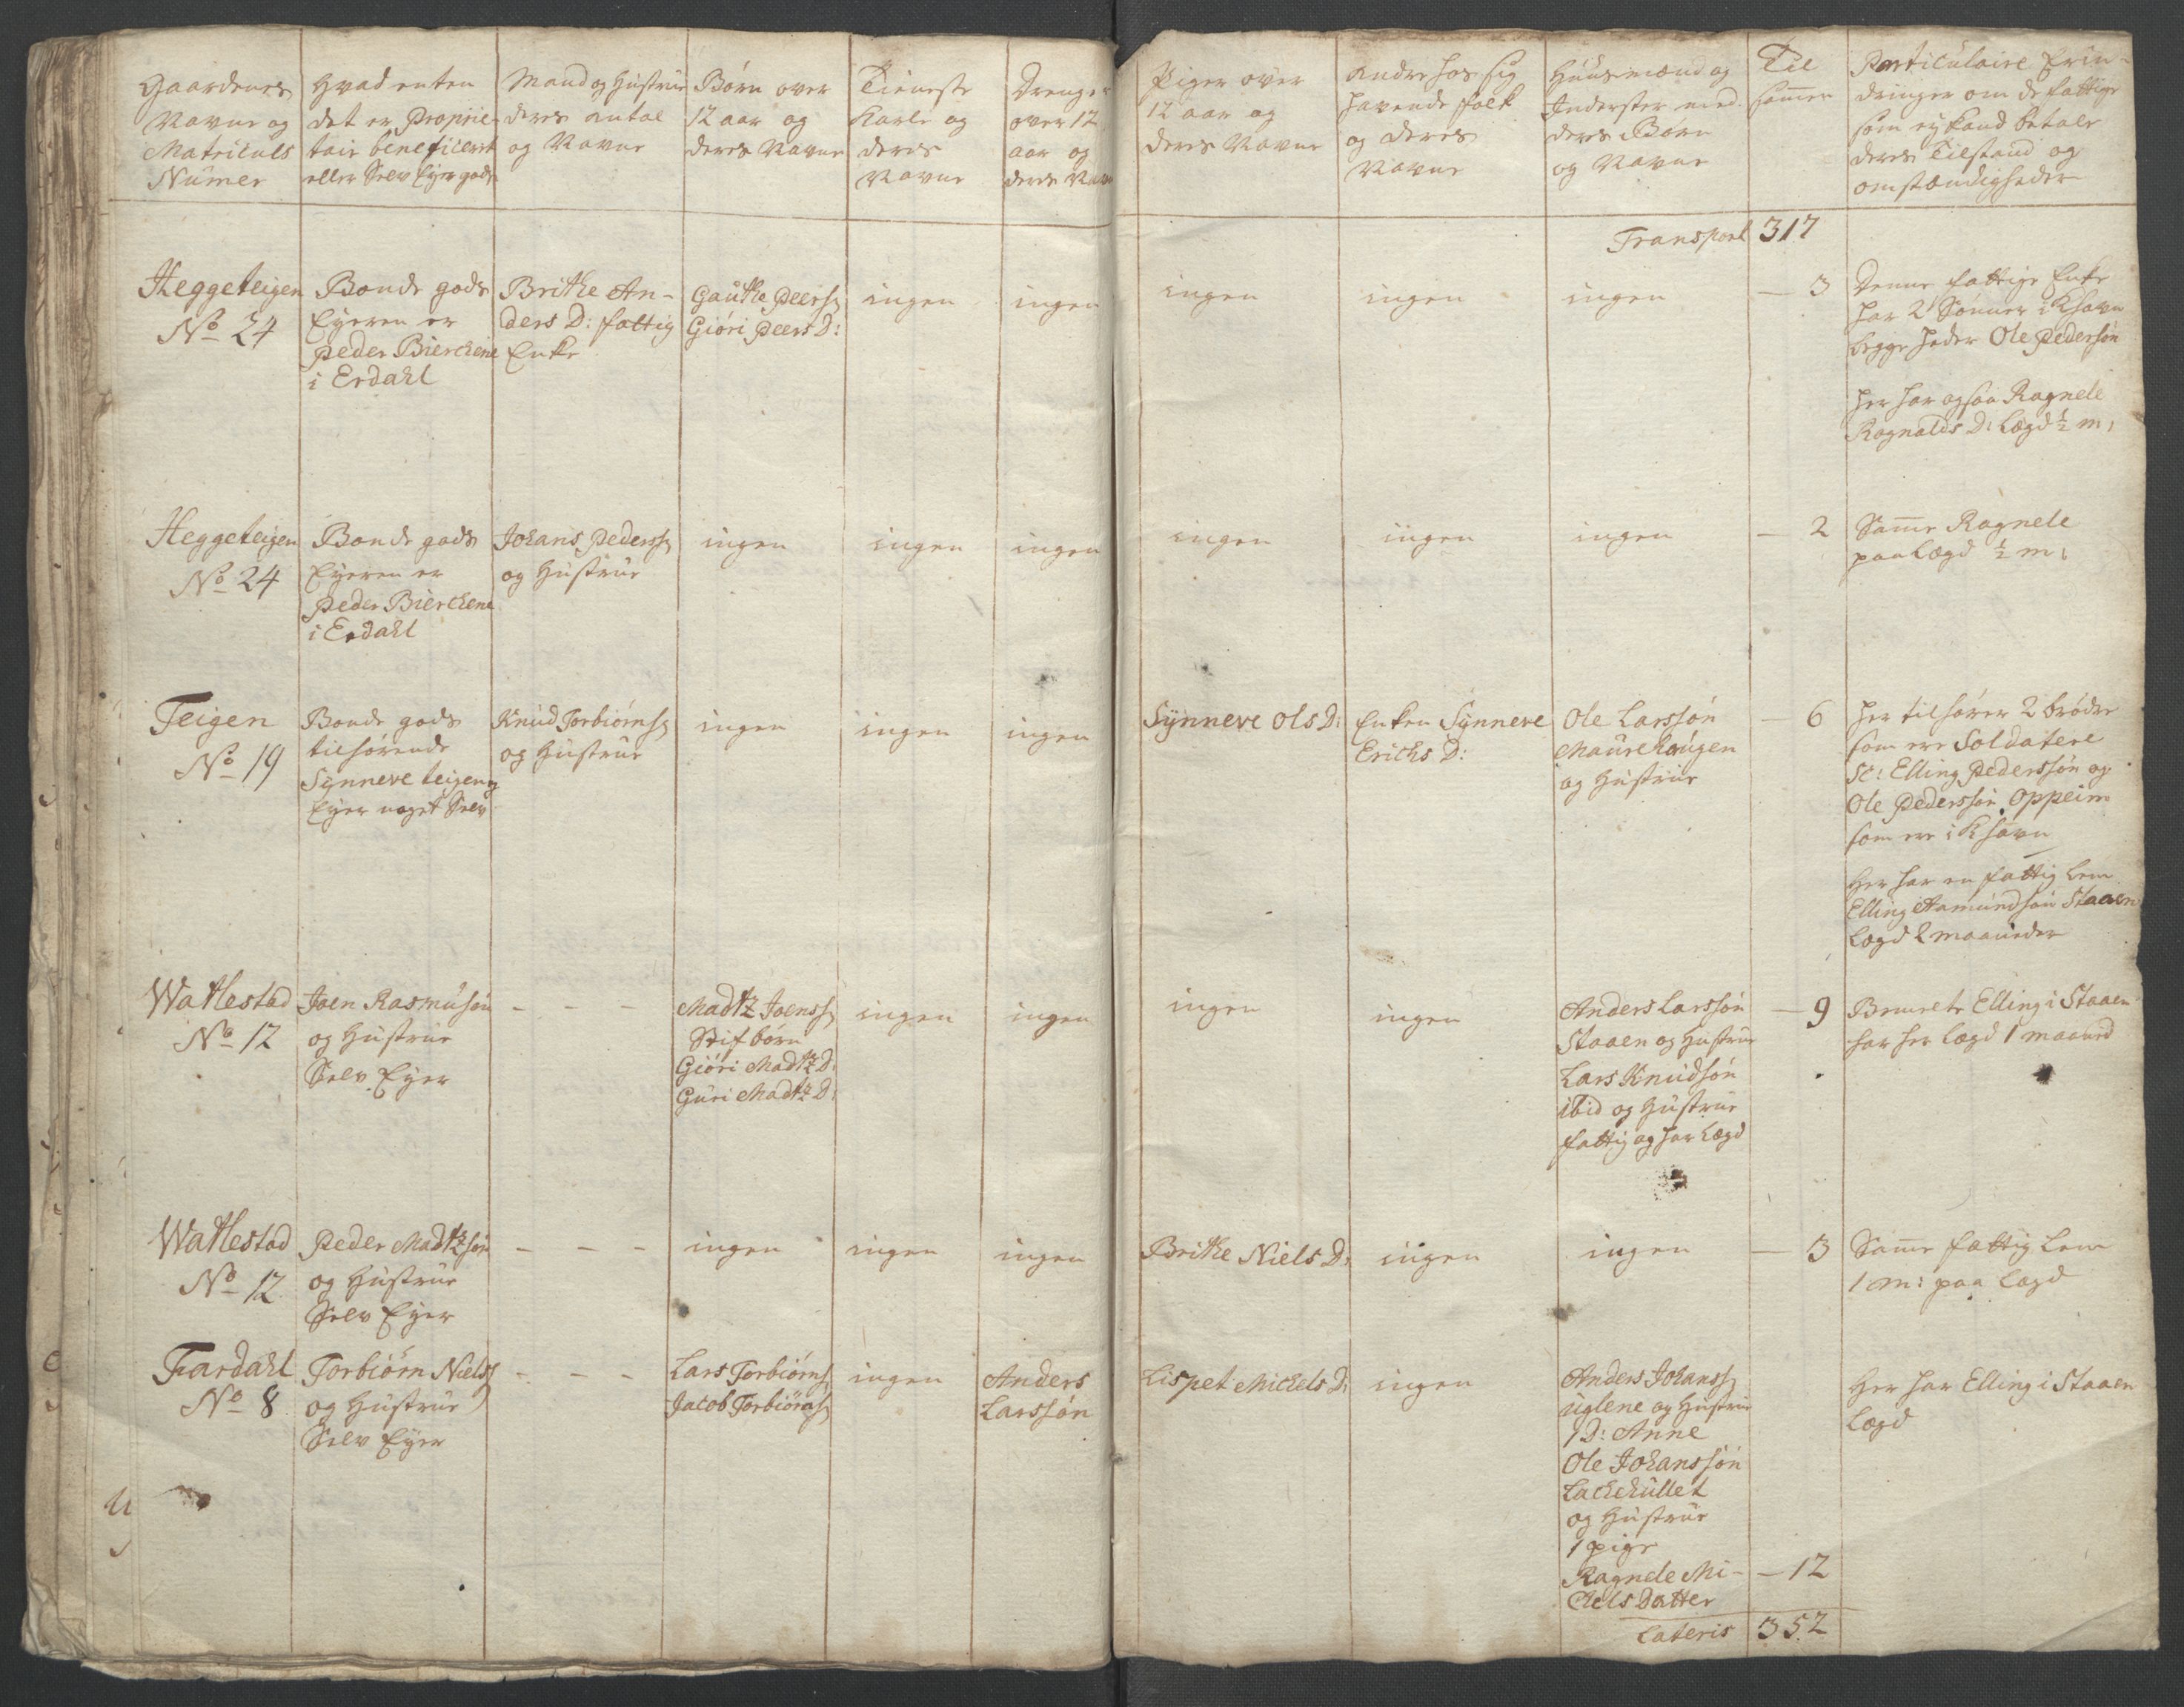 Gaardenes
Navne og
Matriculs
Numer
Hvad enten
det er Proprie-
tair beneficeret
eller Selv Eyer gods
Mand og Hustrue
deres Antal
og Navne
Børn over
12 aar og
deres Navne
Tieneste
Karle og
deres
Navne
Drenge
over 12
aar og
deres Navne
Piger over
12 aar og
deres Navne
Andre hos sig
havende folk
og deres
Navne
Huusmænd og
Inderster med
deres Børn
og Navne
Til
sam̄en
Particulaire Erin-
dringer om de fattige
som ey kand betale
deres Tilstand og
omstændigheder
Transport 317
Heggeteigen
No 24
Bonde gods
Eyeren er
Peder Bierchene
i Erdahl
Brithe An-
ders D: fattig
Enke
Gauthe Peers
Giöri Peers D:
ingen
ingen
ingen
ingen
ingen
— 3
Denne fattige Enke
har 2 Sønner i Khavn
begge heder Ole Pedersøn
her har ogsaa Ragnele
Ragnalds D: Lægd ½ m:
Heggeteigen
No 24
Bonde gods
Eyeren er
Peder Bierchene
i Erdahl
Johans Peders
og Hustrue
ingen
ingen
ingen
ingen
ingen
ingen
— 2
Sam̄e Ragnele
paa Lægd ½ m:
Teigen
No 19
Bonde gods
tilhørende
Synneve teigen og
Eyer noget Selv
Knud Torbiörns
og Hustrue
ingen
ingen
ingen
Synneve Ols D:
Enken Synneve
Erichs D:
Ole Larssön
Maurehaugen
og Hustrue
— 6
her tilhører 2 brødre
som ere Soldatere
Sc: Elling Pederssön og
Ole Pederssön Oppeim
som ere i Khavn
Her har en fattig Lem
Elling Aamundsön Staaen
Lægd 2 maaneder
Watlestad
No 12
Joen Rasmusön
og Hustrue
Selv Eyer
- - -
Madtz Joens
Stif børn
Giöri Madtz D:
Guri Madtz D:
ingen
ingen
ingen
ingen
Anders Larssön
Staaen og Hustrue
Lars Knudsön
ibid og Hustrue
fattig og har Lægd
— 9
Elling i Staaen
har her Lægd 1 maaned
Watlestad
No 12
Peder Madtzsön
og Hustrue
Selv Eyer
- - -
ingen
ingen
ingen
Brithe Niels D:
ingen
ingen
— 3
Sam̄e fattig Lem
1 m: paa Lægd
Fardahl
No 8
Torbiörn Niels
og Hustrue
Selv Eyer
- - -
Lars Torbiörns
Jacob Torbiörns
ingen
Anders
Larssön
Lispet Michels D:
ingen
Anders Johans
Uglene og Hustrue
1 D: Anne
Ole Johanssön
Lachehullet
og Hustrue
1 pige
Ragnele Mi-
chels Datter
— 12
Her har Elling i Staaen
Lægd
Lateris 352